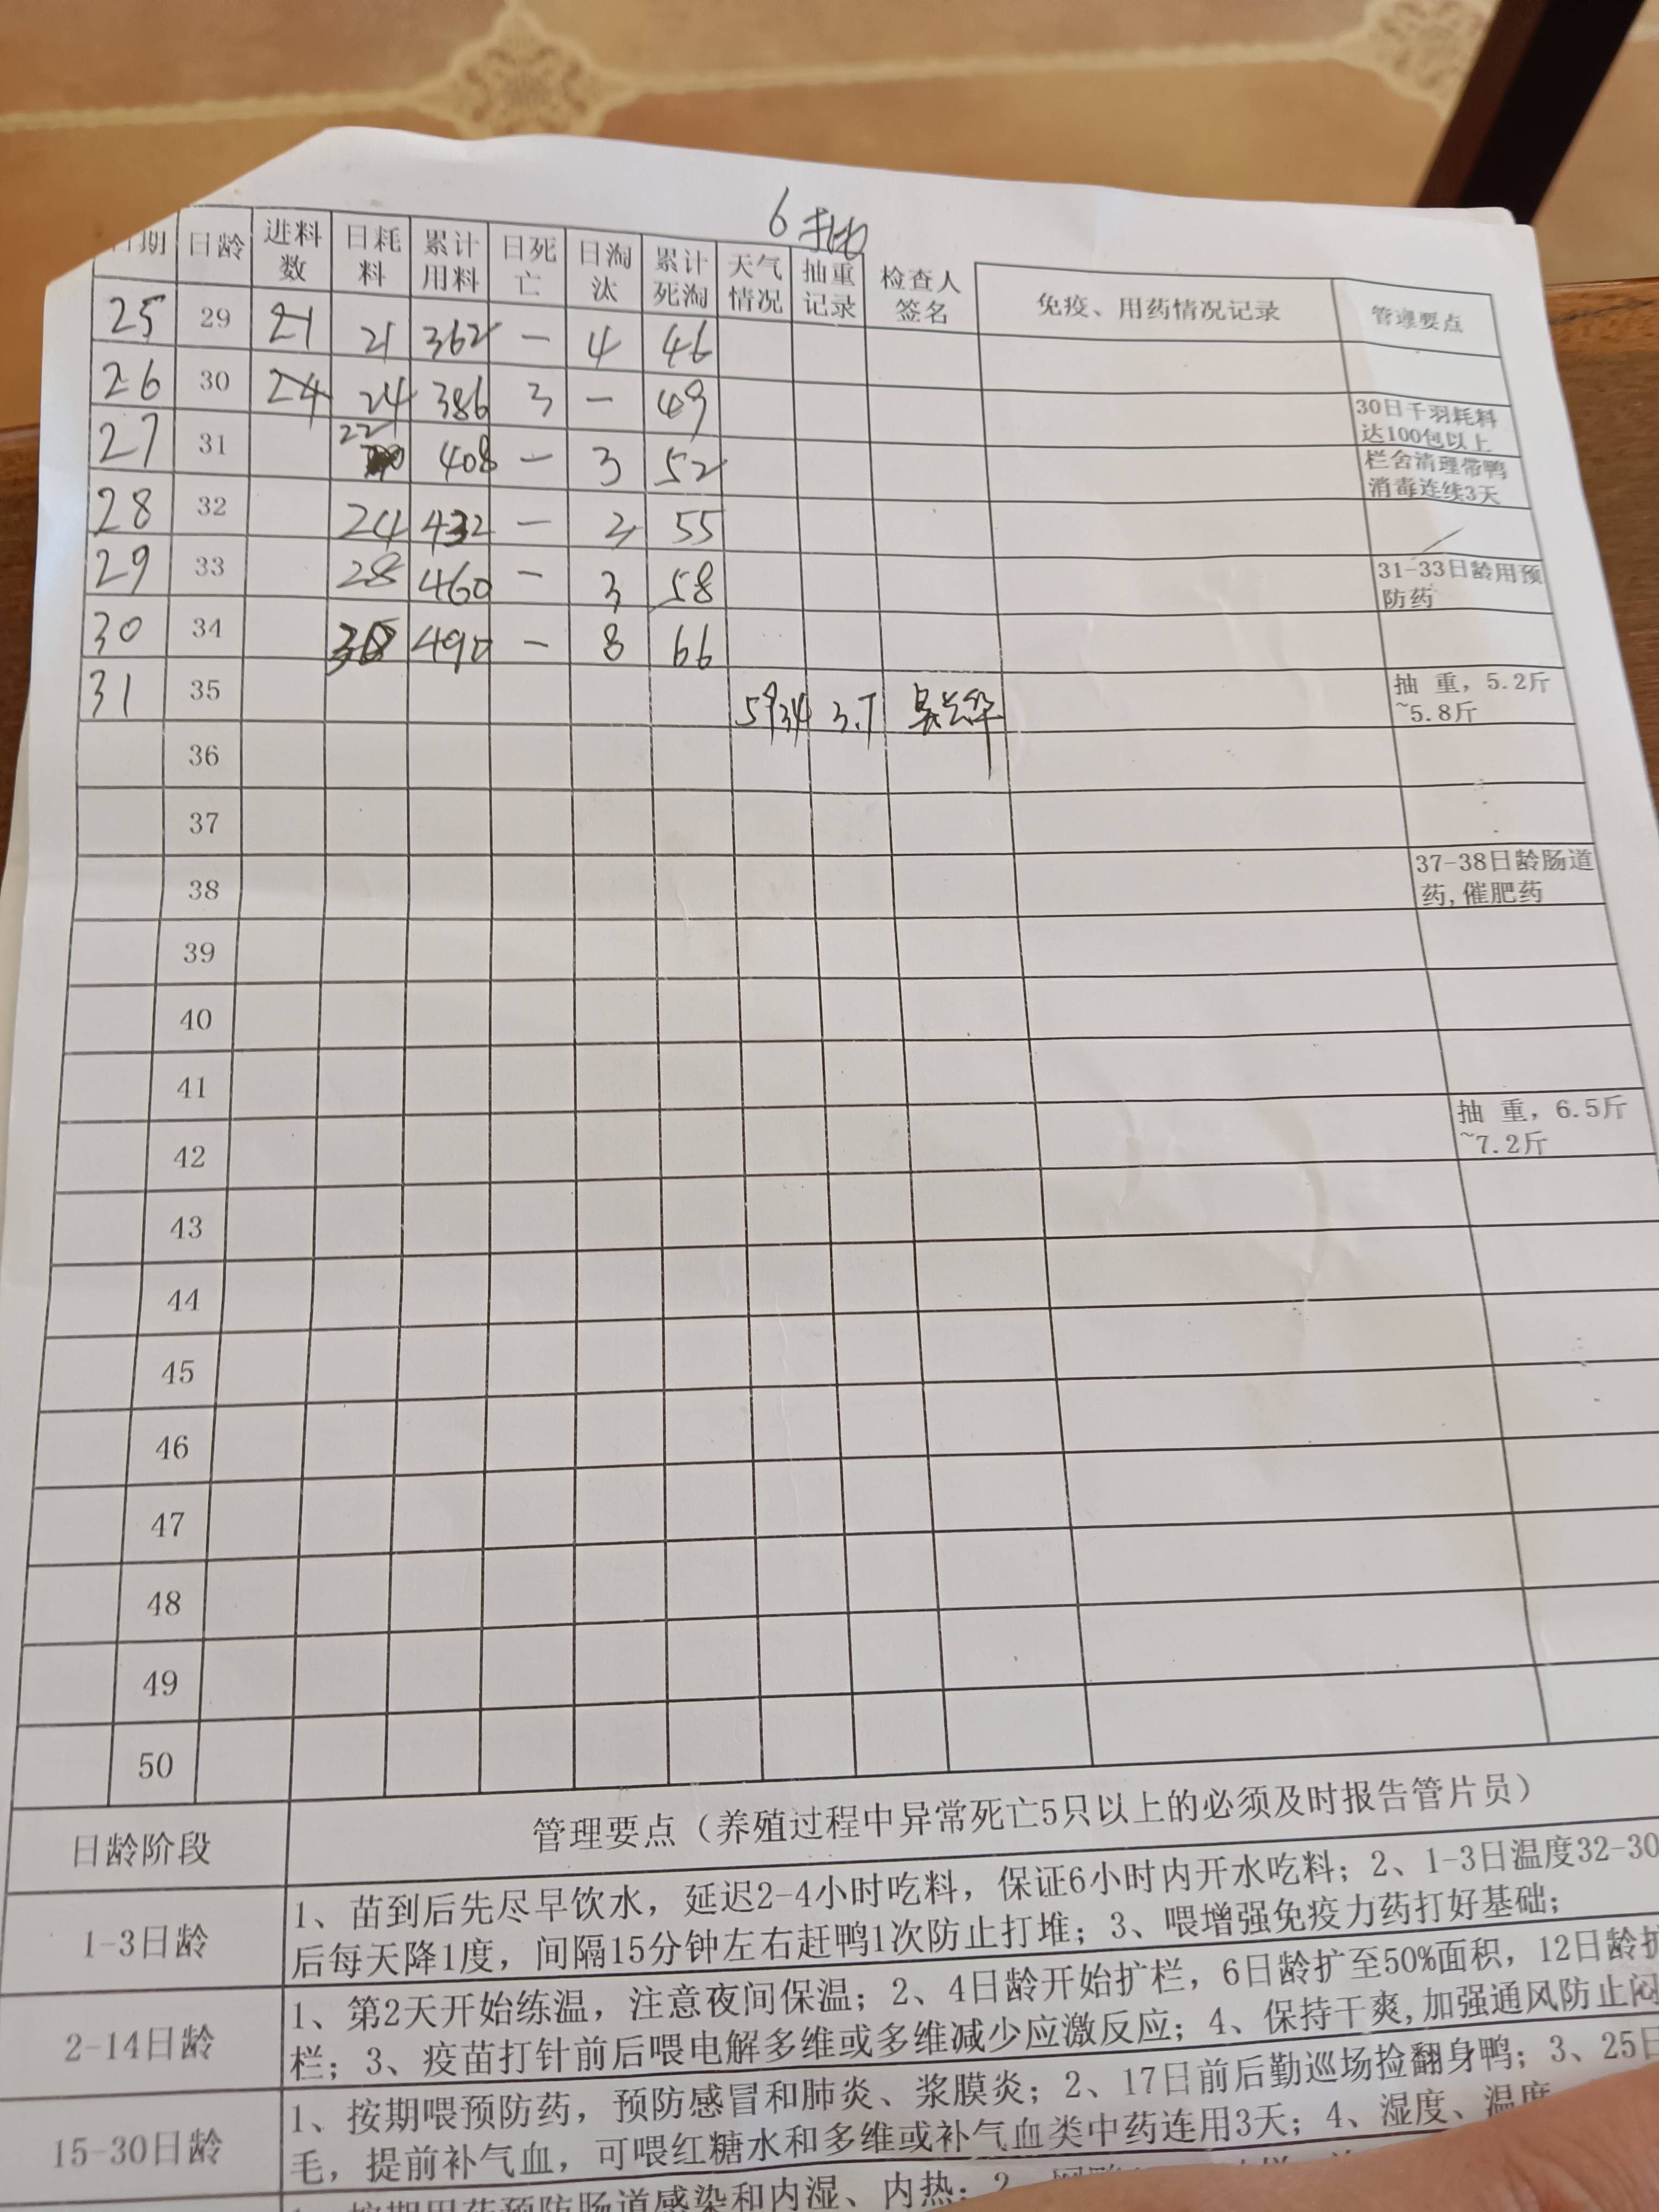 6批
日期 日龄 进料数 日耗料 累计用料 日死亡 日淘汰 累计死淘 天气情况 抽重记录 检查人签名 免疫、用药情况记录 管理要点
25 29 21 21 362 — 4 46
26 30 24 24 386 3 — 49
30日千羽耗料
达100包以上
27 31 22 408 — 3 52
栏舍清理带鸭
消毒连续3天
28 32 24 432 — 3 55
29 33 28 460 — 3 58
31-33日龄用预
防药
30 34 30 490 — 8 66
31 35 3.7
抽 重，5.2斤
~5.8斤
36
37
38
37-38日龄肠道
药,催肥药
39
40
41
42
抽 重，6.5斤
~7.2斤
43
44
45
46
47
48
49
50
日龄阶段 管理要点（养殖过程中异常死亡5只以上的必须及时报告管片员）
1-3日龄
1、苗到后先尽早饮水，延迟2-4小时吃料，保证6小时内开水吃料；2、1-3日温度32-30
后每天降1度，间隔15分钟左右赶鸭1次防止打堆；3、喂增强免疫力药打好基础；
2-14日龄
1、第2天开始练温，注意夜间保温；2、4日龄开始扩栏，6日龄扩至50%面积，12日龄扩
栏；3、疫苗打针前后喂电解多维或多维减少应激反应；4、保持干爽,加强通风防止闷
15-30日龄
1、按期喂预防药，预防感冒和肺炎、浆膜炎；2、17日前后勤巡场捡翻身鸭；3、25日
毛，提前补气血，可喂红糖水和多维或补气血类中药连用3天；4、湿度、温度
1、按期用药预防肠道感染和内湿、内热；2、